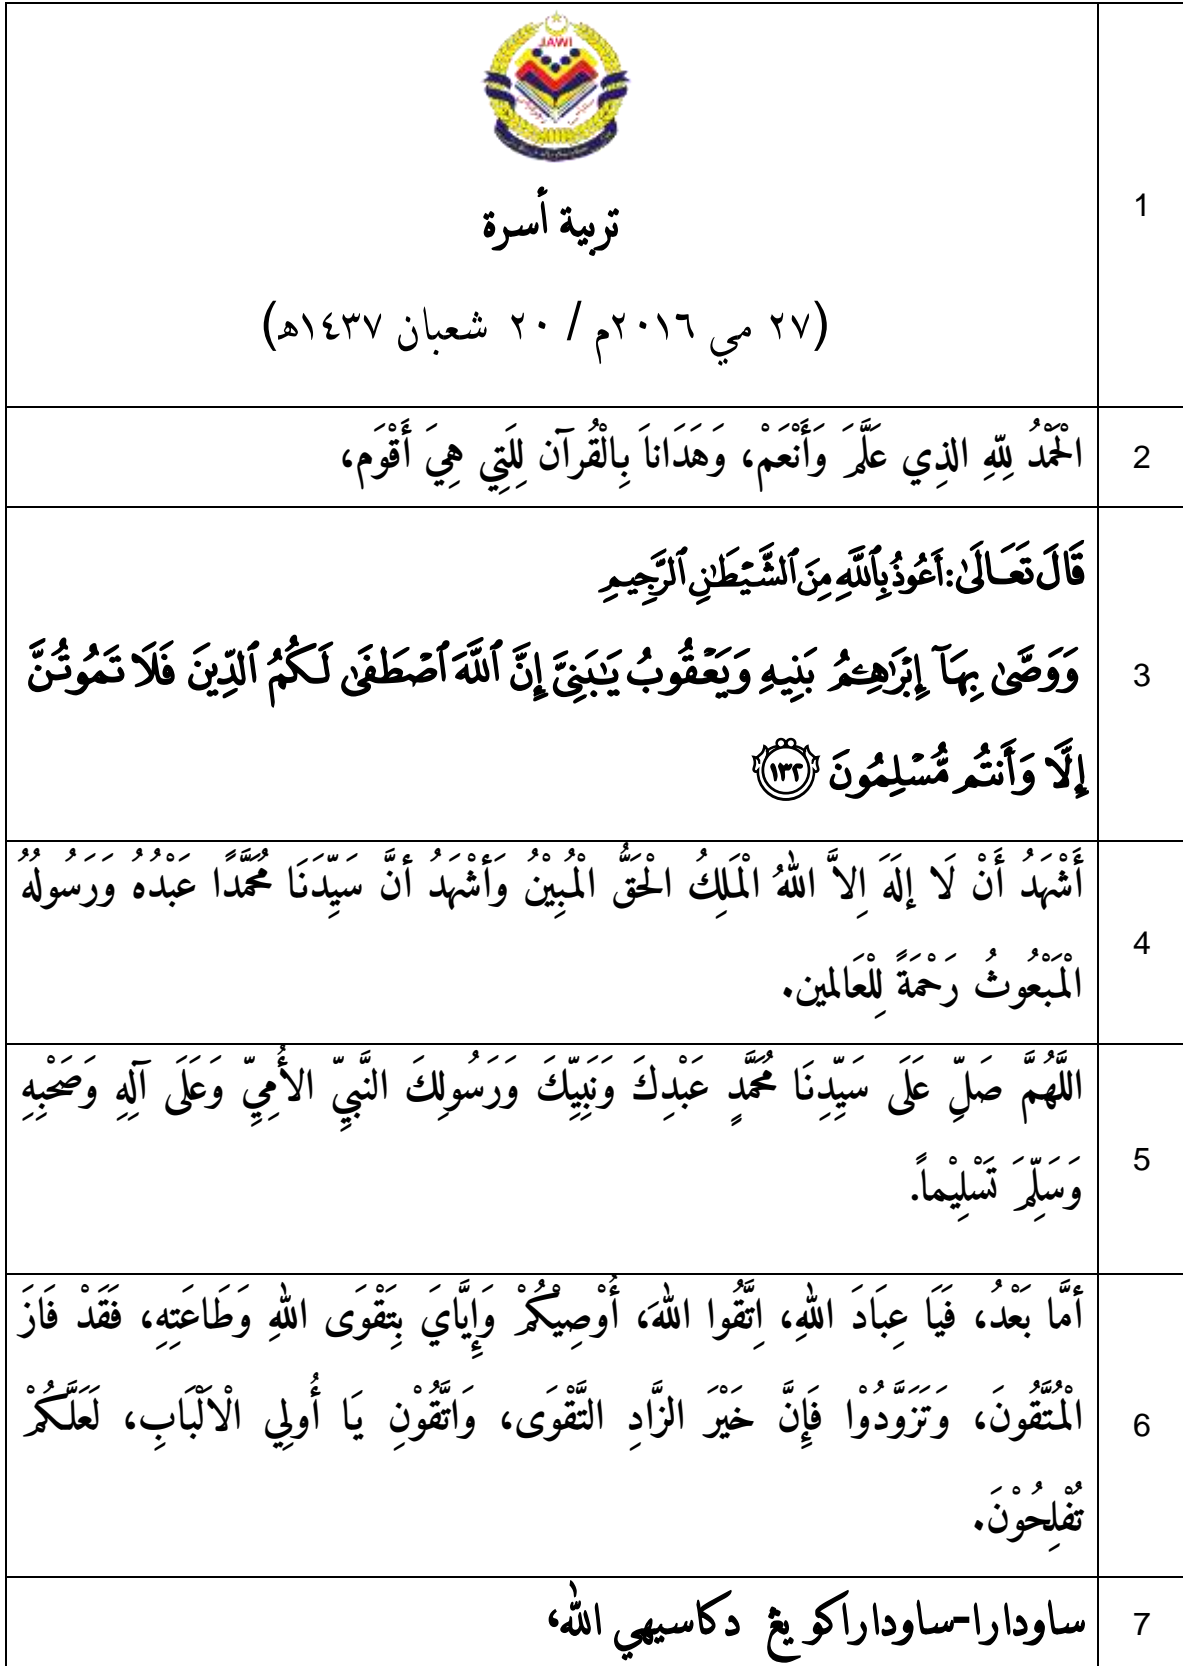 JAWI
تربية أسرة
1
(٢٧ مي ٢٠١٦م / ٢٠ شعبان ١٤٣٧هـ)
الْحَمْدُ لِلّهِ الذِي عَلَّمَ وَأَنْعَمْ، وَهَدَاناَ بِالْقُرآن لِلَتِي هِيَ أَقْوَم،
2
قَالَ تَعَالَىٰ: أَعُوذُ بِٱللَّهِ مِنَ ٱلشَّيْطَٰنِ ٱلرَّجِيمِ
وَوَصَّىٰ بِهَآ إِبْرَٰهِـۧمُ بَنِيهِ وَيَعْقُوبُ يَٰبَنِىَّ إِنَّ ٱللَّهَ ٱصْطَفَىٰ لَكُمُ ٱلدِّينَ فَلَا تَمُوتُنَّ
3
إِلَّا وَأَنتُم مُّسْلِمُونَ ﴿١٣٢﴾
أَشْهَدُ أَنْ لَا إلَهَ اِلاَّ اللهُ الْمَلِكُ الْحَقُّ الْمُبِيْنُ وَأشْهَدُ أنَّ سَيِّدَنَا مُحَمَّدًا عَبْدُهُ وَرَسُولُهُ
4
الْمَبْعُوثُ رَحْمَةً لِلْعَالمين.
اللَّهُمَّ صَلِّ عَلَى سَيِّدِنَا مُحَمَّدٍ عَبْدِكَ وَنَبِيِّكَ وَرَسُولِكَ النَّبِيِّ الأُمِيِّ وَعَلَى آلِهِ وَصَحْبِهِ
5
وَسَلِّمَ تَسْلِيْماً.
أمَّا بَعْدُ، فَيَا عِبَادَ اللهِ، اِتَّقُوا اللهَ، أُوْصِيْكُمْ وَإِيَّايَ بِتَقْوَى اللهِ وَطَاعَتِهِ، فَقَدْ فَازَ
الْمُتَّقُونَ، وَتَزَوَّدُوْا فَإِنَّ خَيْرَ الزَّادِ التَّقْوَى، وَاتَّقُوْنِ يَا أُولِي الْاَلْبَابِ، لَعَلَّكُمْ
6
تُفْلِحُوْنَ.
ساودارا-ساوداراكو يڠ دكاسيهي الله،
7